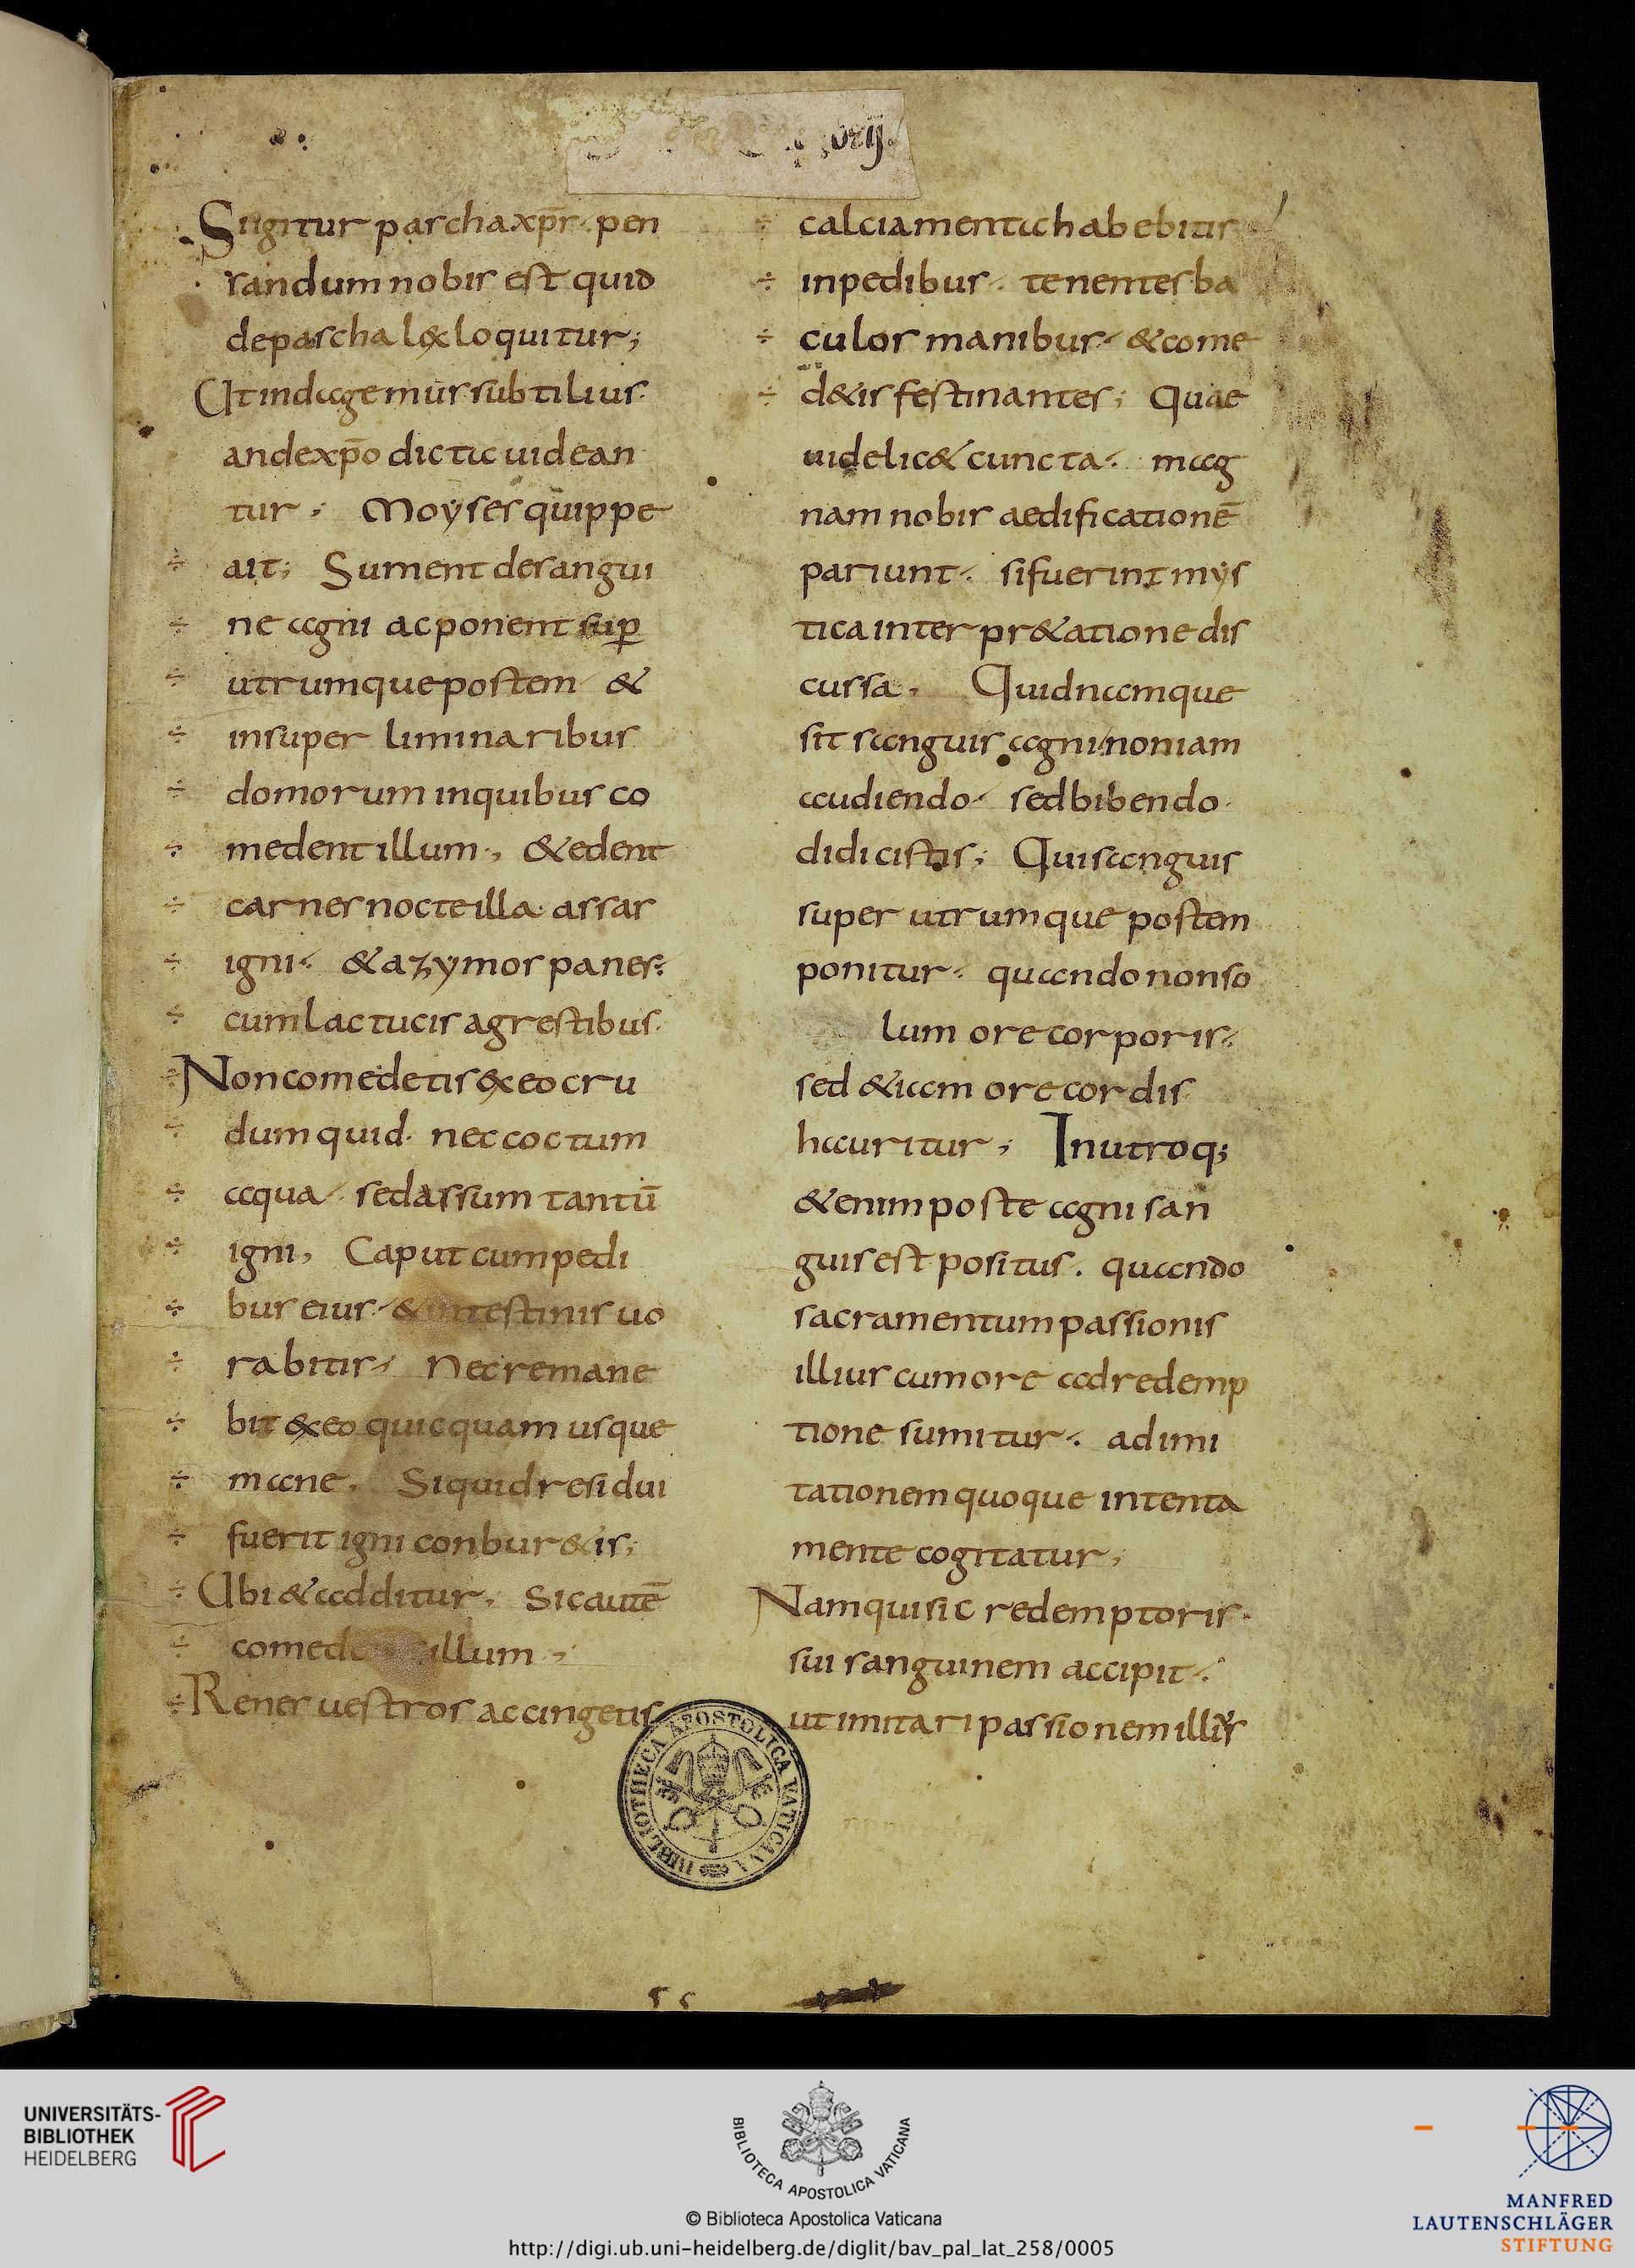 orij.
Siigitur pascha xp̄s· pen
sandum nobis est quid
de pascha lex loquitur;
Ut indagemus subtilius·
an de xp̄o dicta uidean
tur; Moyses quippe
ait; Sument de sangui
ne agni ac ponent sup̄
utrumque postem &
in super liminaribus
domorum in quibus co
medent illum; & edent
carnes nocte illa· assas
igni· & azymos panes·
cum lactucis agrestibus·
Non comedetis ex eo cru
dum quid· nec coctum
aqua· sed assum tantū
igni, Caput cum pedi
bus eius· & intestinis uo
rabitis· Nec remane
bit ex eo quicquam usque
mane. Si quid residui
fuerit igni conbur&is;
Ubi & additur. Sic autē
comed illum;
Renes uestros accingetis
calciamenta habebitis
in pedibus· tenentes ba
culos manibus· & come
d&is festinantes; Quae
uidelic& cuncta· mag
nam nobis aedificationē
pariunt· si fuerint mys
tica interpr&atione dis
cussa. Quid namque
sit sanguis agni non iam
audiendo· sed bibendo·
didicistis; Qui sanguis
super utrumque postem
ponitur· quando non so
lum ore corporis·
sed &iam ore cordis·
hauritur; In utroq;
&enim poste agni san
guis est positus. quando
sacramentum passionis
illius cum ore ad redemp
tione sumitur· ad imi
tationem quoque intenta
mente cogitatur;
Nam qui sic redemptoris·
sui sanguinem accipit·
ut imitari passionem illius
BIBLIOTHECA APOSTOLICA VATICANA
UNIVERSITÄTS-
BIBLIOTHEK
HEIDELBERG
BIBLIOTECA APOSTOLICA VATICANA
© Biblioteca Apostolica Vaticana
http://digi.ub.uni-heidelberg.de/diglit/bav_pal_lat_258/0005
MANFRED
LAUTENSCHLÄGER
STIFTUNG